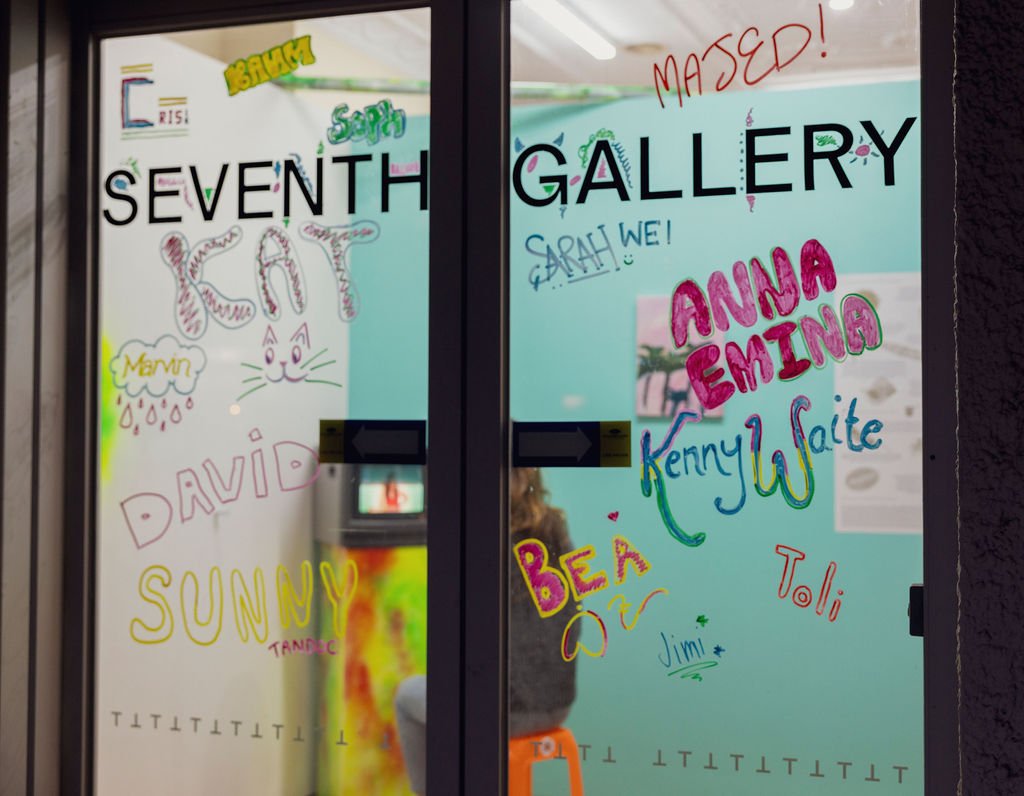 MAJED!
CRISI
Soph
SEVENTH GALLERY
KAT
SARAH WE!
ANNA
EMINA
Marvin
Kenny Waite
DAVID
BEA
Toli
SUNNY
TANDEC
Jimi